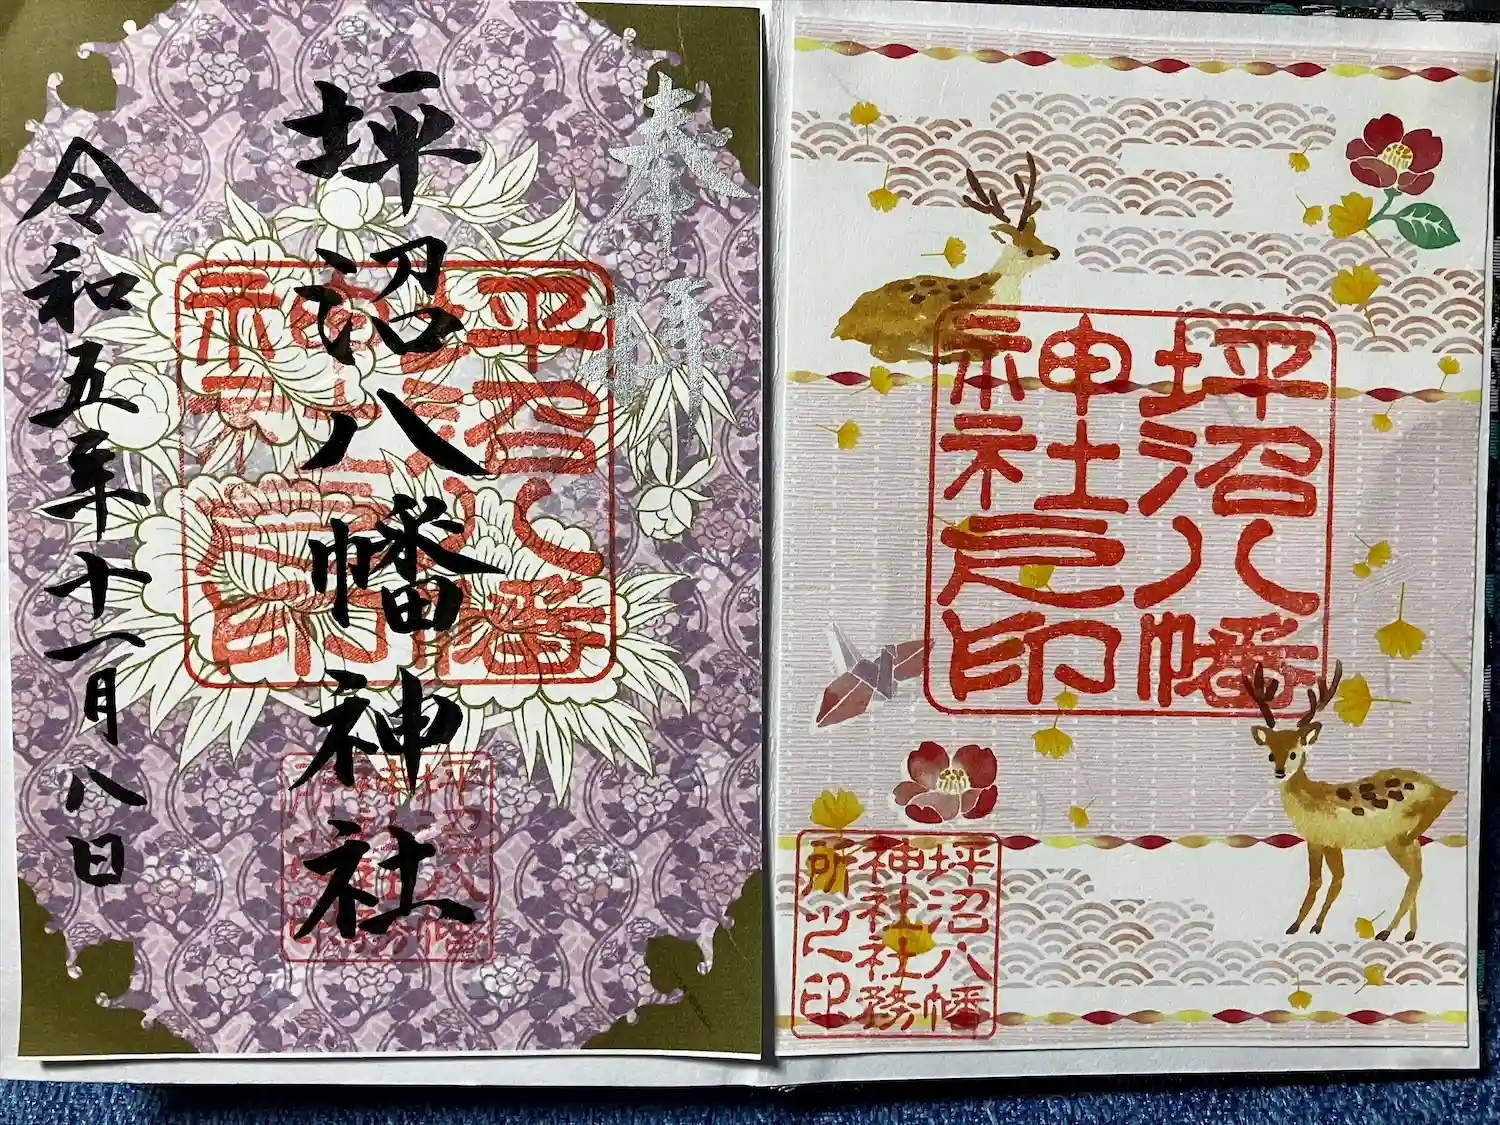 奉拝
坪沼八幡神社
令和五年十一月八日
坪沼八幡
神社之印
坪沼八幡
神社社務
所之印
坪沼八幡
神社之印
坪沼八幡
神社社務
所之印